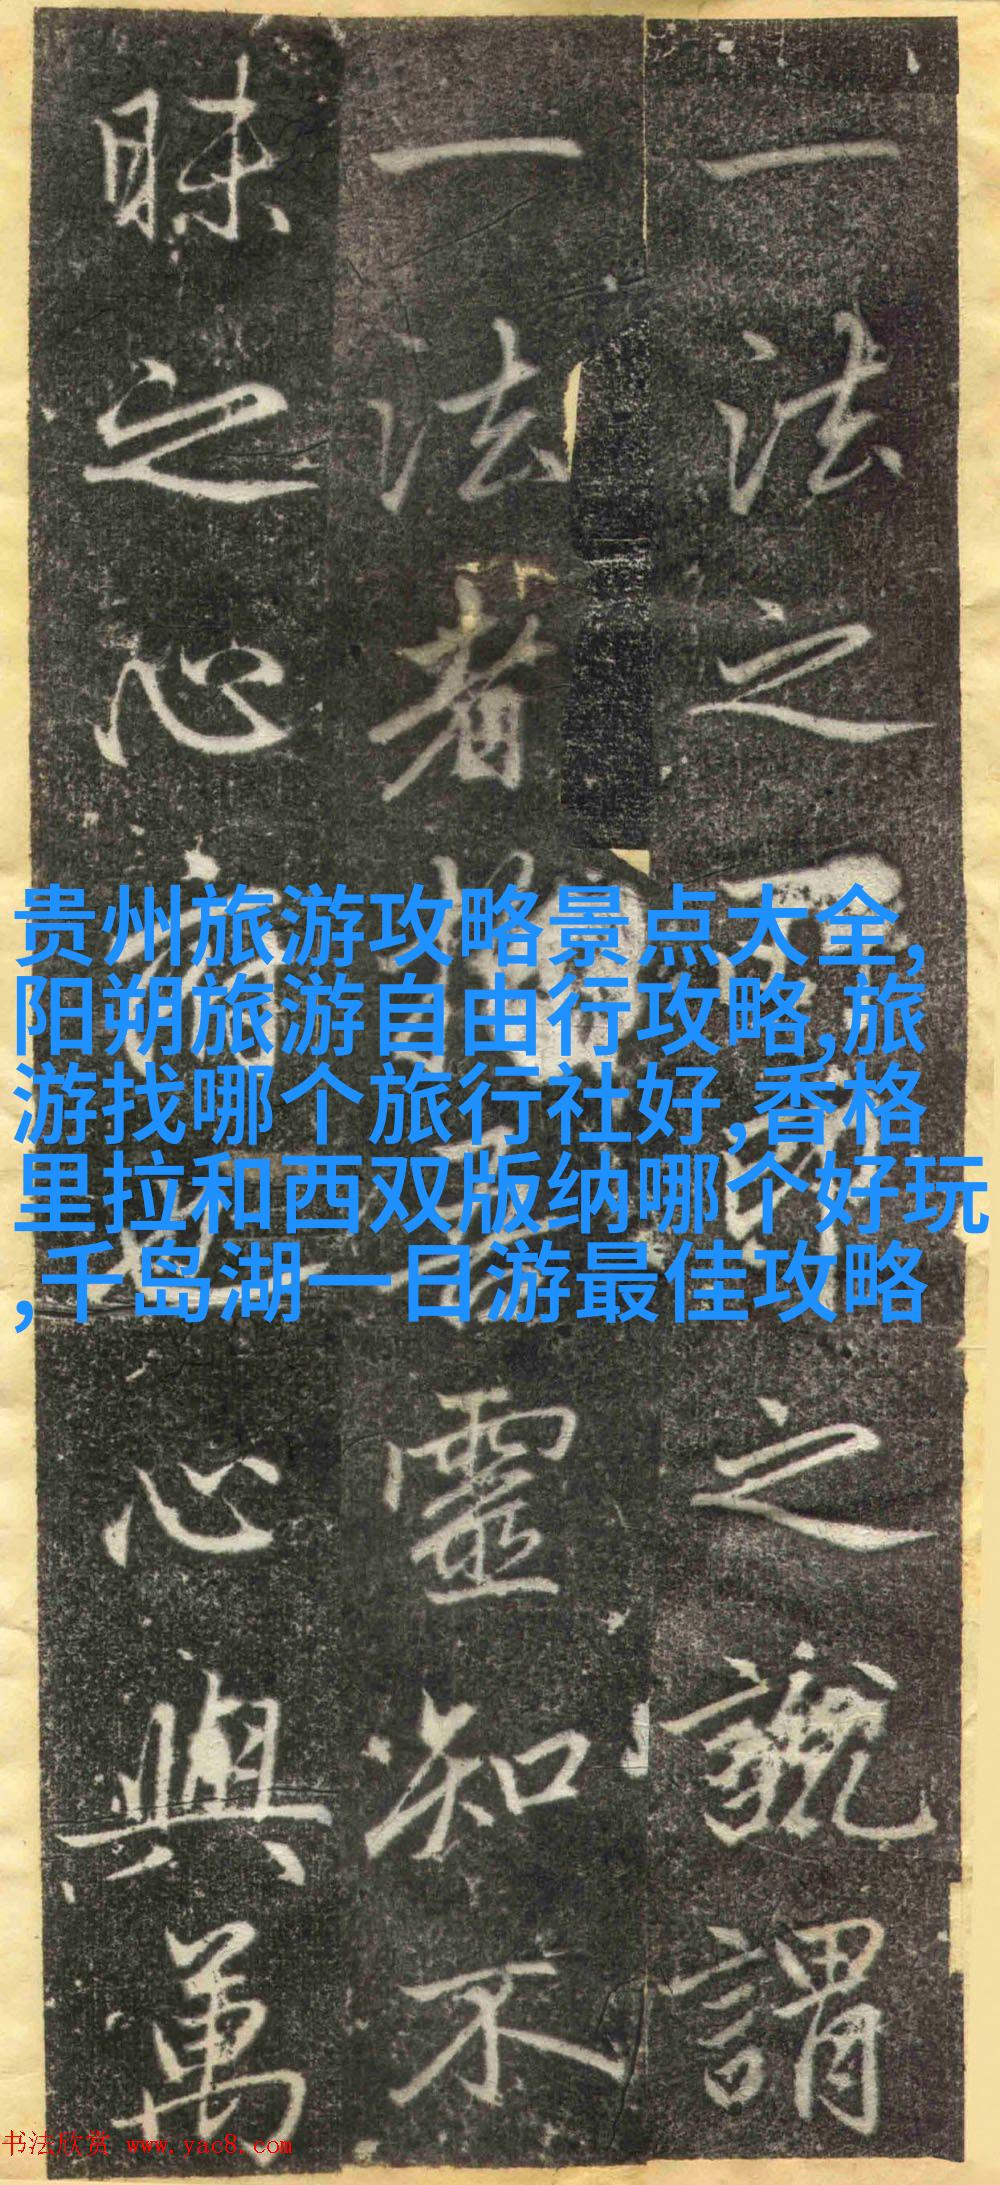 一法之之說謂
一法者靈知不
昧之心心與萬
贵州旅游攻略景点大全,
阳朔旅游自由行攻略,旅
游找哪个旅行社好,香格
里拉和西双版纳哪个好玩
,千岛湖一日游最佳攻略
书法欣赏 www.yac8.com